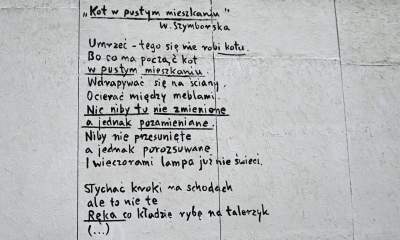 „Kot w pustym mieszkaniu"
W. Szymborska
Umrzeć - tego się nie robi kotu.
Bo co ma począć kot
w pustym mieszkaniu.
Wdrapywać się na ściany.
Ocierać między meblami.
Nic niby tu nie zmienione
a jednak pozamieniane.
Niby nie przesunięte
a jednak porozsuwane.
I wieczorami lampa już nie świeci.
Słychać kroki na schodach
ale to nie te
Ręka co kładzie rybę na talerzyk
(...)